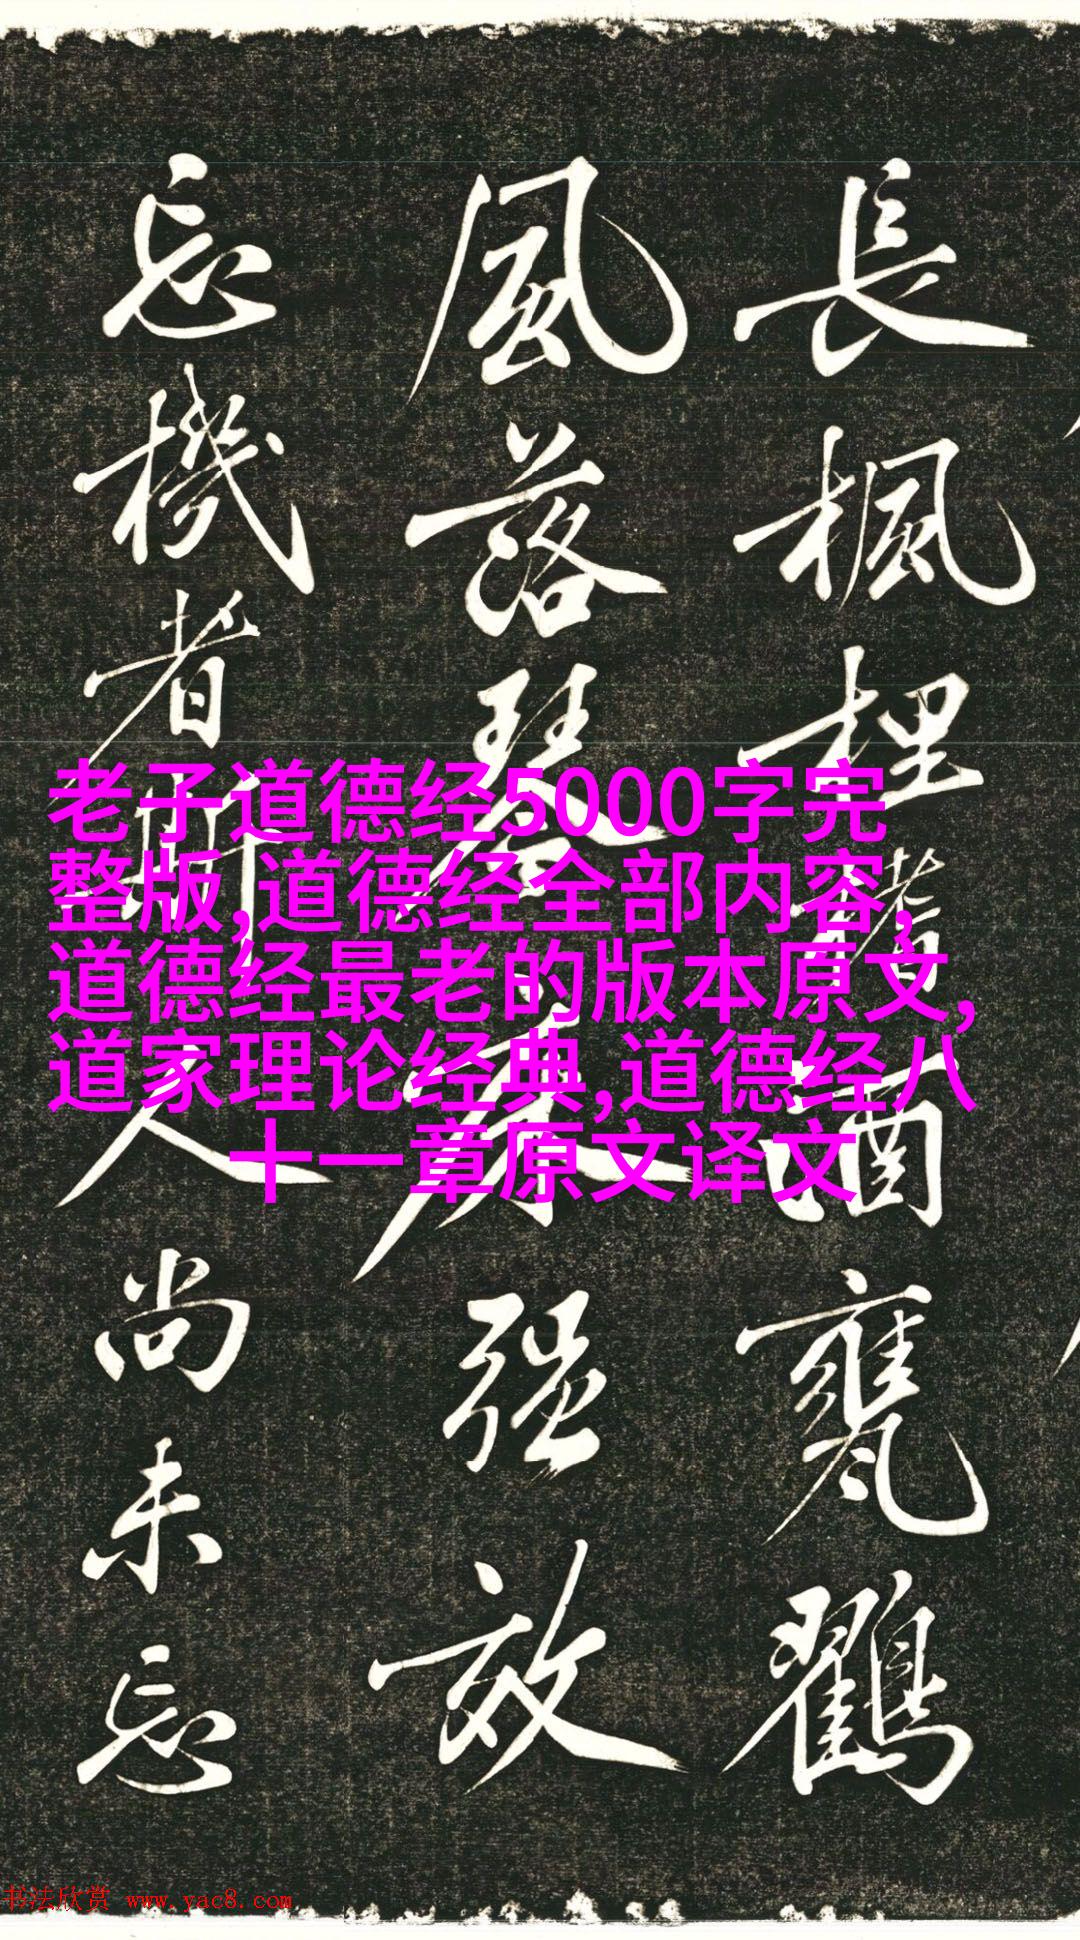 長楓埋舊酒甕鶴
風落琴床强效
忘機者斯人尚未忘
老子道德经5000字完
整版,道德经全部内容,
道德经最老的版本原文,
道家理论经典,道德经八
十一章原文译文
书法欣赏 www.yac8.com